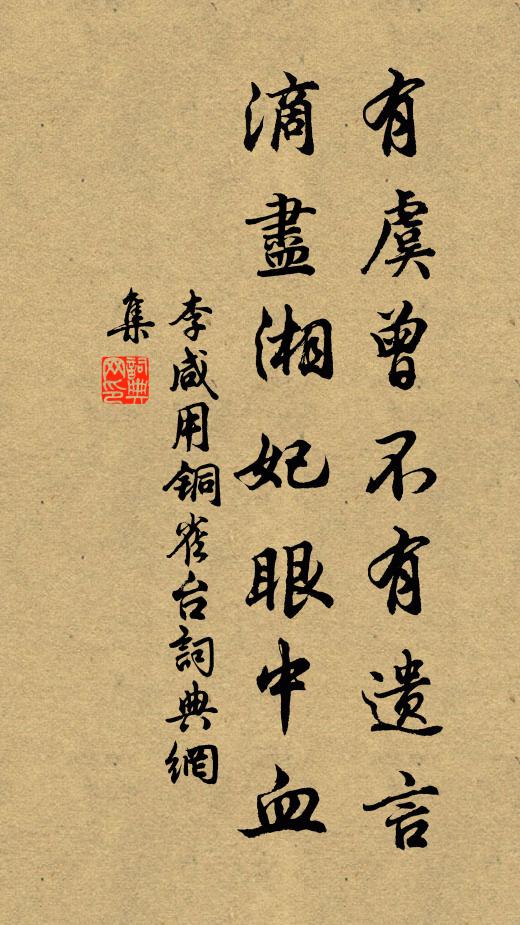 有虞曾不有遗言
滴盡湘妃眼中血
李咸用铜雀台詞典網
集
詞典网印